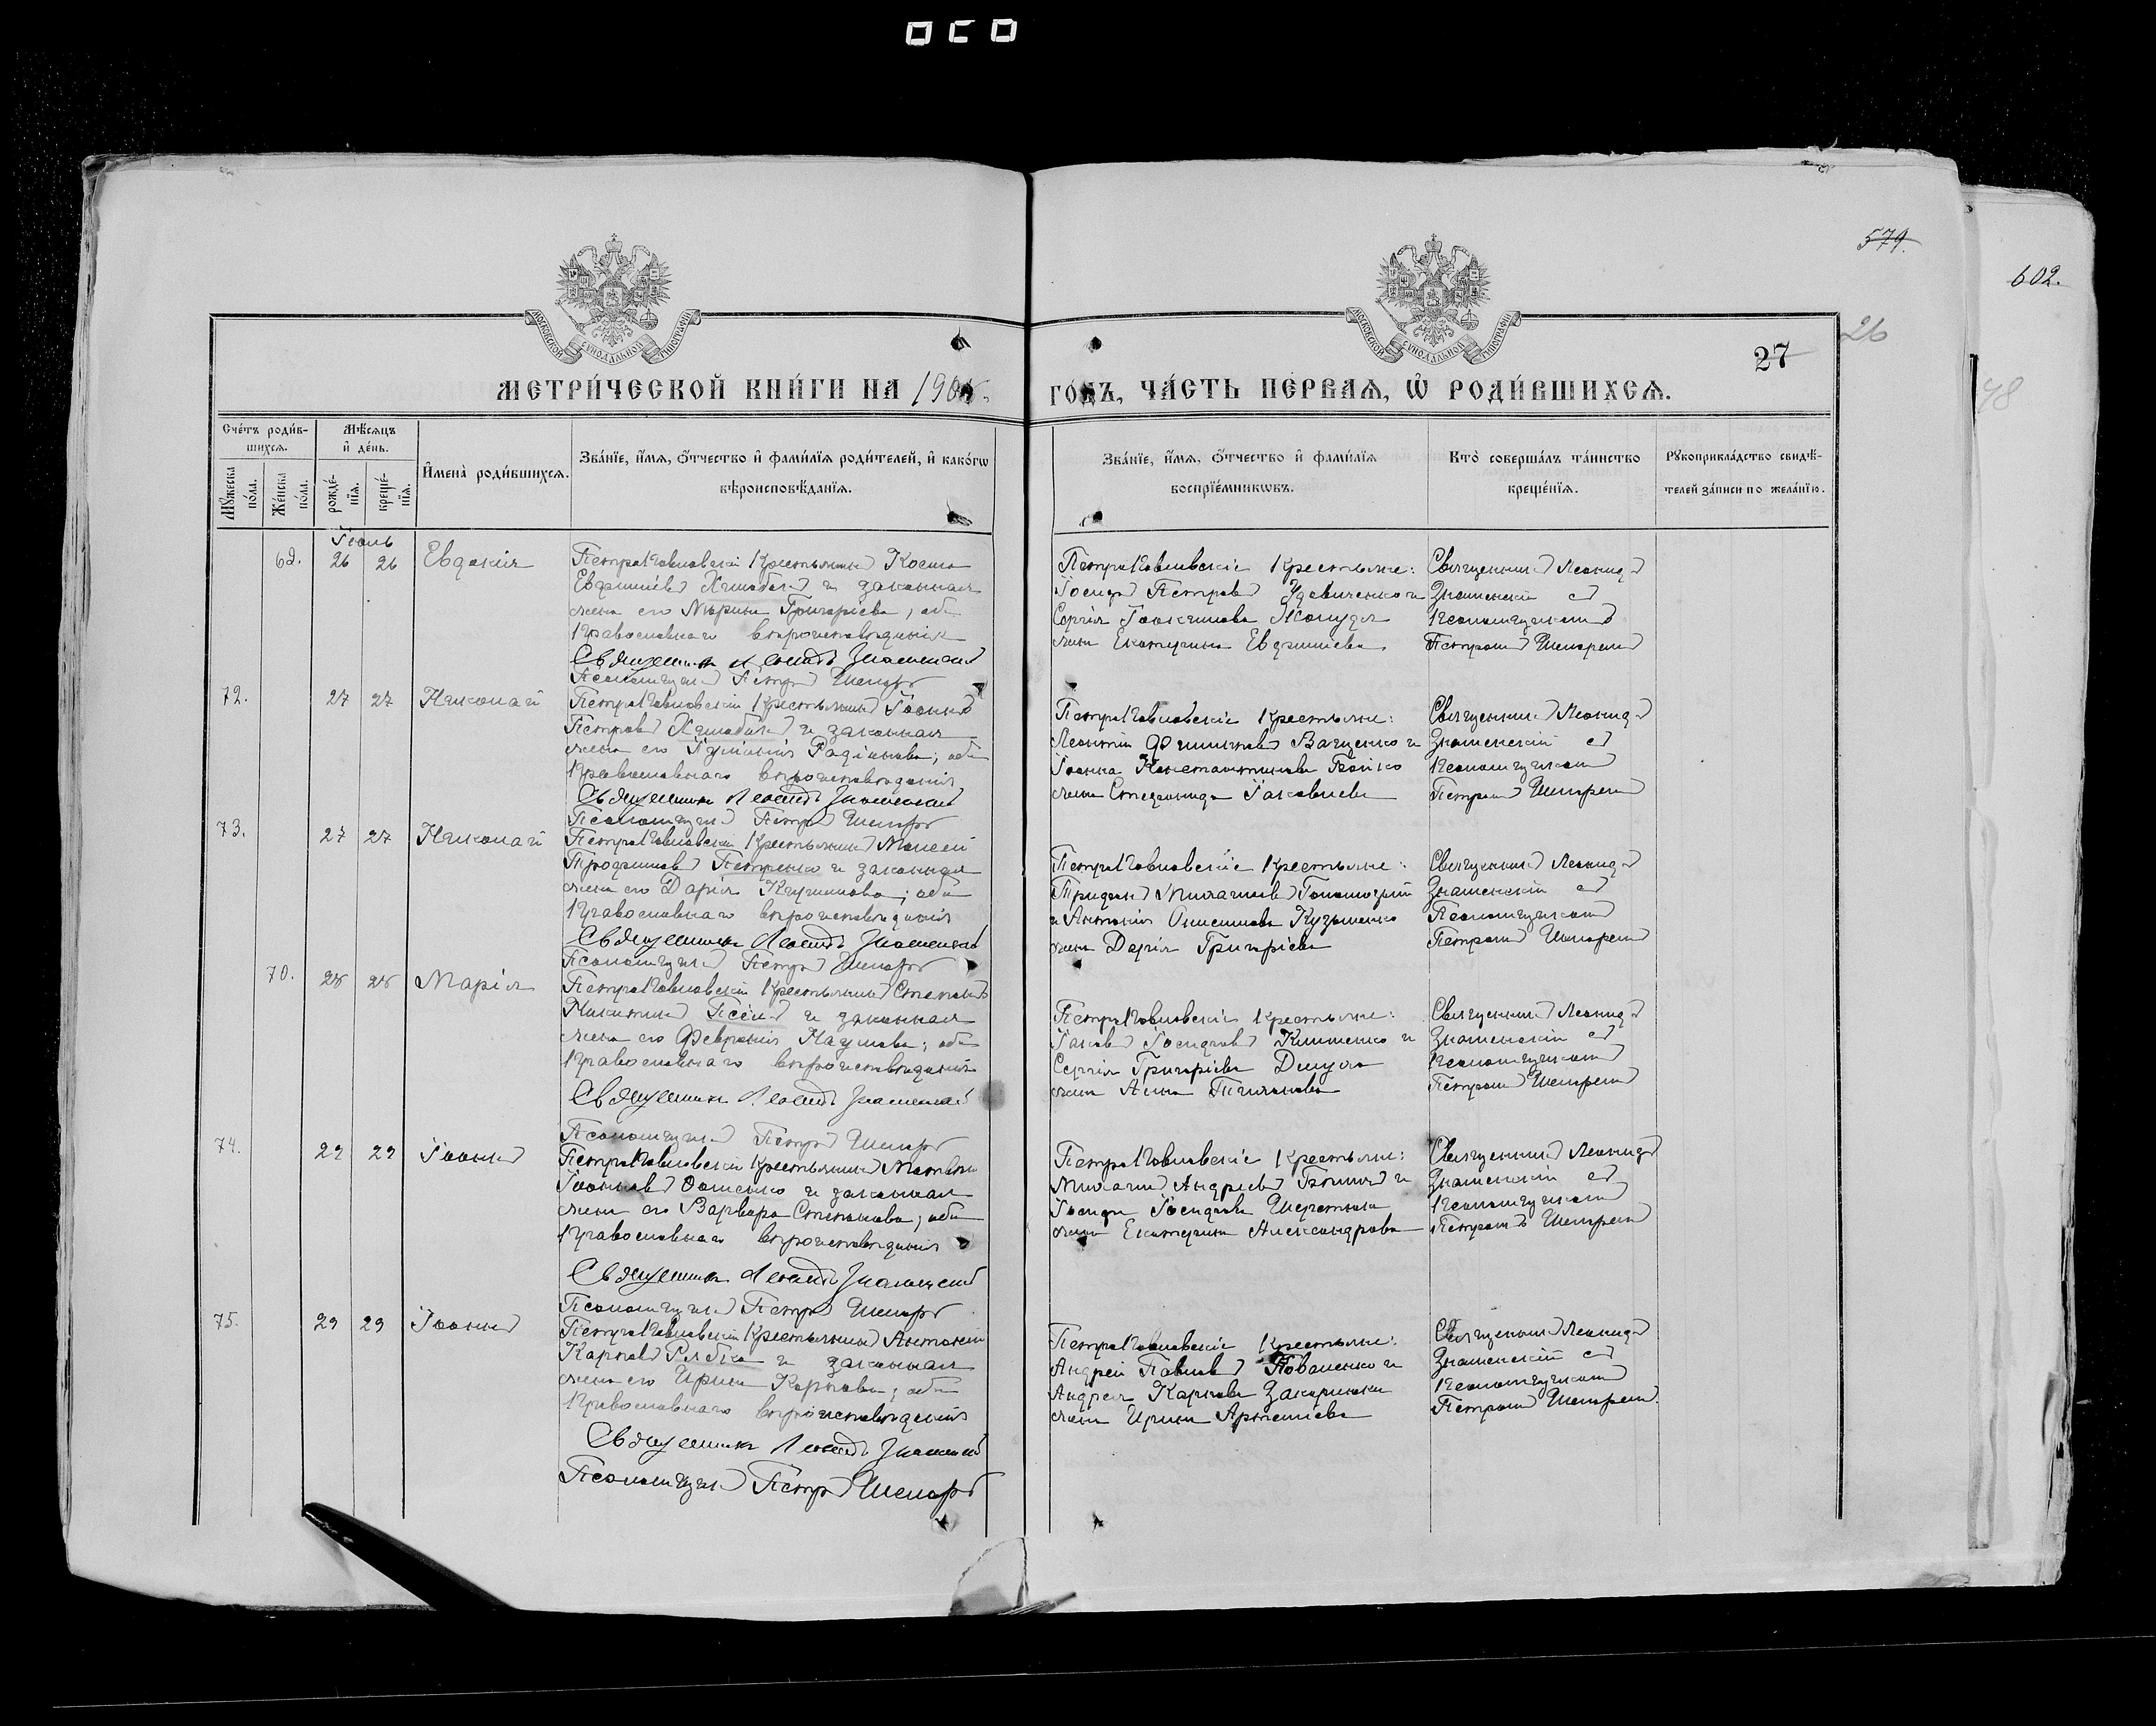 579.
602.
26
27
48
МОСКОВСКОЙ СѴНОДАЛЬНОЙ ТИПОГРАФІИ
МОСКОВСКОЙ СѴНОДАЛЬНОЙ ТИПОГРАФІИ
МЕТРИ́ЧЕСКОЙ КНИ́ГИ НА 190
ГО́ДЪ, ЧА́СТЬ ПЕ́РВАЯ, Ѽ РОДИ́ВШИХСЯ.
Сче́тъ роди́в-
шихся.
Мꙋ́жеска по́ла.
Же́нска по́ла.
Мѣ́сяцъ
и҆ де́нь.
рожде́-нїя.
креще́-нїя.
И҆мена̀ роди́вшихся.
Зва́нїе, и҆́мя, ѻ҆́тчество и҆ фами́лїя роди́телей, и҆ како́гѡ
вѣроисповѣ́данїя.
Зва́нїе, и҆́мя, ѻ҆́тчество и҆ фами́лїя
воспрїе́мникѡвъ.
Кто̀ соверша́лъ та́инство
креще́нїя.
Рꙋкоприкла́дство свидѣ́-
телей за́писи по жела́нїю.
Іюль
69. 26 26 Евдокія
Петропавловскій Крестьянинъ Косма
и законная
жена его Марина Григоріева; оба
Православнаго вѣроисповѣданія
Священникъ Леонидъ Знаменскій
Псаломщикъ Петръ
Петропавловскіе Крестьяне:
Іосифъ Петровъ Удовиченко и
Сергія Іоакимова
жена Екатерина
Священникъ Леонидъ
Знаменскій съ
Псаломщикомъ
Петромъ
72. 27 27 Николай
Петропавловскій Крестьянинъ Іоаннъ
Петровъ и законная
жена его оба
Православнаго вѣроисповѣданія
Священникъ Леонидъ Знаменскій
Псаломщикъ Петръ
Петропавловскіе Крестьяне:
Леонтій Филипповъ Ващенко и
Іоанна Константинова Бойко
жена Стефанида Іаковлева
Священникъ Леонидъ
Знаменскій съ
Псаломщикомъ
Петромъ
73. 27 27 Николай
Петропавловскій Крестьянинъ Моисей
Трофимовъ Петренко и законная
жена его Дарія оба
Православнаго вѣроисповѣданія
Священникъ Леонидъ Знаменскій
Псаломщикъ Петръ
Петропавловскіе Крестьяне:
Трифонъ Михаиловъ
и Антонія Онисимова Кузьменко
жена Дарія Григоріева
Священникъ Леонидъ
Знаменскій съ
Псаломщикомъ
Петромъ
70. 28 28 Марія
Петропавловскій Крестьянинъ Степанъ
Никитинъ и законная
жена его Февронія Наумова; оба
Православнаго вѣроисповѣданія
Священникъ Леонидъ Знаменскій
Псаломщикъ Петръ
Петропавловскіе Крестьяне:
Іаковъ Іосифовъ Клименко и
Сергія Григоріева
жена Анна
Священникъ Леонидъ
Знаменскій съ
Псаломщикомъ
Петромъ
74. 29 29 Іоаннъ
Петропавловскій Крестьянинъ
Іоанновъ и законная
жена его Варвара Степанова; оба
Православнаго вѣроисповѣданія
Священникъ Леонидъ Знаменскій
Псаломщикъ Петръ
Петропавловскіе Крестьяне:
Михаилъ Андреевъ и
Іосифа Іосифова
жена Екатерина Александрова
Священникъ Леонидъ
Знаменскій съ
Псаломщикомъ
Петромъ
75. 29 29 Іоаннъ
Петропавловскій Крестьянинъ Антоній
Карповъ Рябко и законная
жена его Ирина Карпова; оба
Православнаго вѣроисповѣданія
Священникъ Леонидъ Знаменскій
Псаломщикъ Петръ
Петропавловскіе Крестьяне:
Андрей Павловъ и
Андрея Карпова
жена Ирина Артеміева
Священникъ Леонидъ
Знаменскій съ
Псаломщикомъ
Петромъ